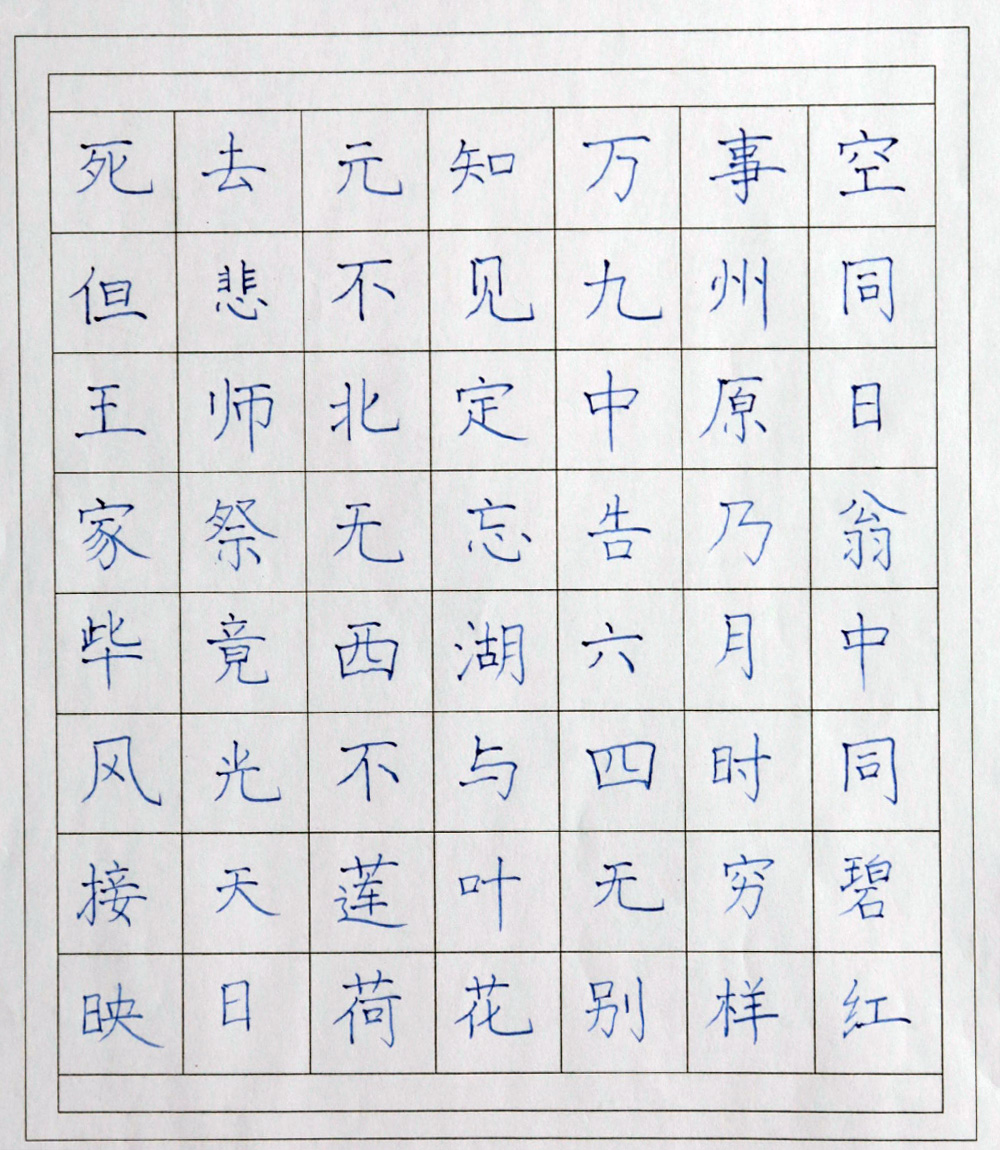 死去元知万事空
但悲不见九州同
王师北定中原日
家祭无忘告乃翁
毕竟西湖六月中
风光不与四时同
接天莲叶无穷碧
映日荷花别样红